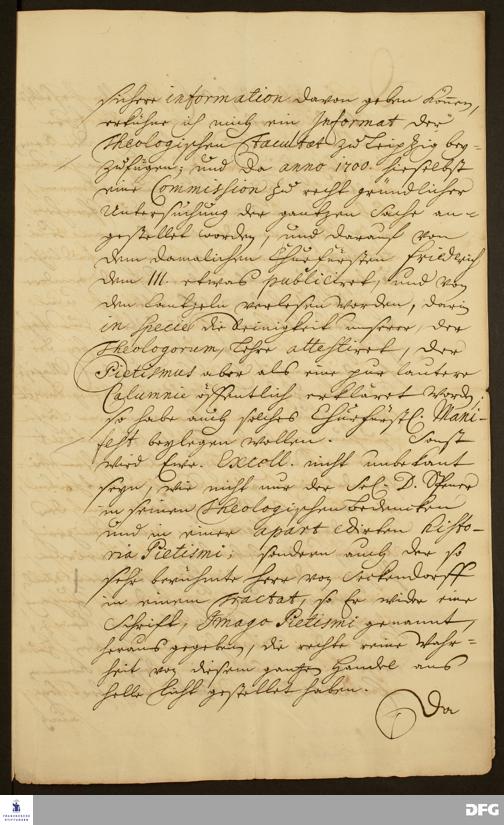 sichere information davon geben können,
erkühne ich mich ein Informat der
Theologischen Facultät zu Leipzig bey-
zufügen; und da anno 1700. hieselbst
eine Commission zu recht gründlicher
Untersuchung der gantzen Sache an-
gestellet worden, und darauf von
dem damalichen Churfürsten Friedrich
dem III. etwas publiciret, und von
den Cantzeln verlesen worden, darin
in specie die Reinigkeit unserer, der
Theologorum, Lehre attestiret, der
Pietismus aber als eine pur lautere
Calumnie öffentlich erkläret worden,
so habe auch solches Churfürstl. Mani-
fest beylegen wollen. Sonst
wird Ewr. Excell. nicht unbekant
seyn, wie nicht nur der Sel. D. Spener
in seinen Theologischen Bedencken
und in einer apart edirten Histo-
ria Pietismi; sondern auch der so
sehr berühmte Herr von Seckendorff
in einem Tractat, so Er wider eine
Schrift, Imago Pietismi genannt,
heraus gegeben, die rechte reine Wahr-
heit von diesem gantzen Handel ans
helle Licht gestellet haben.
Da
FRANCKESCHE
STIFTUNGEN
DFG